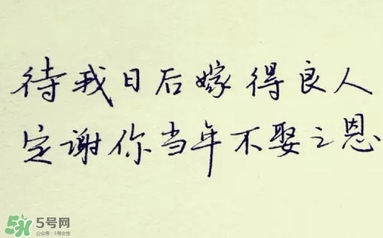 待我日后嫁得良人
定谢你当年不娶之恩
5号网
公众号:5号女性